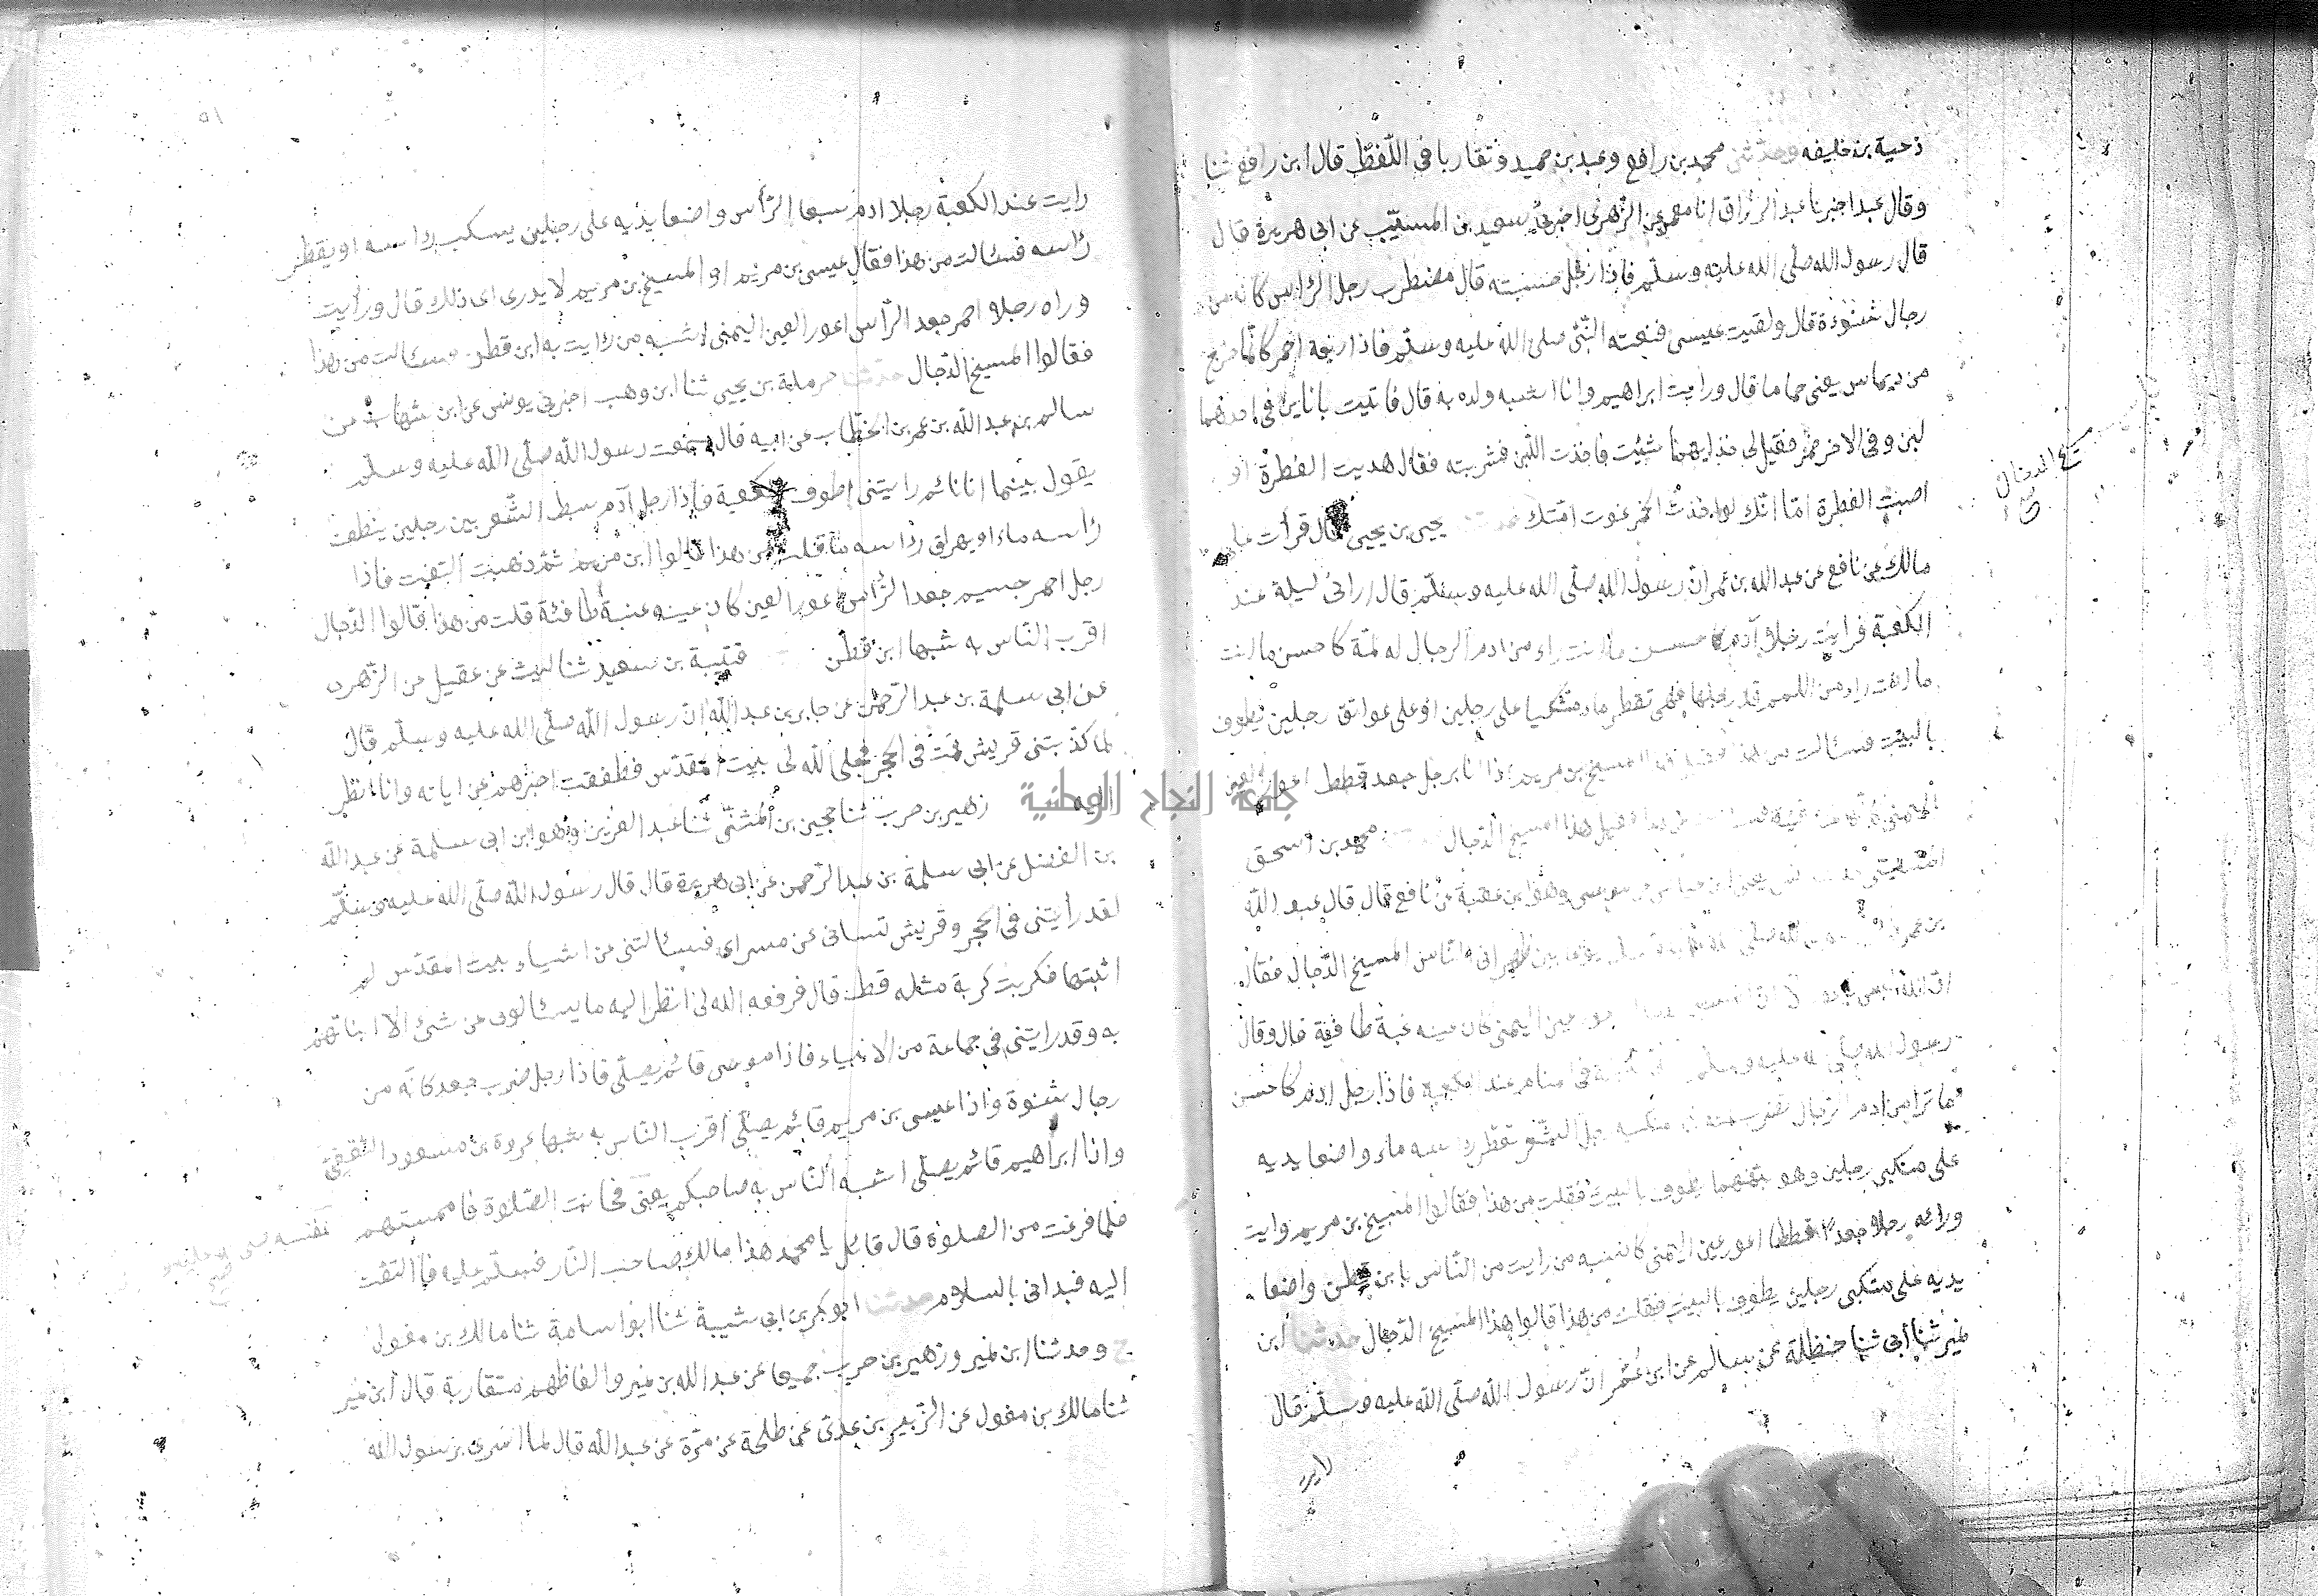 ذحية بن خليفه وحدثني محمد بن رافع وعبد بن حميد وتقاربا في اللفظ قال ابن رافع ثنا
وقال عبد اخبرنا عبد الرزاق انا معمر عن الزهري اخبرني سعيد بن المسيب عن ابي هريرة قال
قال رسول الله صلى الله عليه وسلم فاذا رجل حسبته قال مضطرب رجل الراس كانه من
رجال شنوءة قال ولقيت عيسى فنعته النبي صلى الله عليه وسلم فاذا ربعة احمر كانما خرج
من ديماس يعني حماما قال ورايت ابراهيم وانا اشبه ولده به قال فاتيت باناين في احدهما
لبن وفي الاخر خمر فقيل لي خذ ايهما شئت فاخذت اللبن فشربته فقال هديت الفطرة او
اصبت الفطرة امّا انّك لو اخذت الخمر غوت امتك يحيى بن يحيى قال قرات على
مالك عن نافع عن عبد الله بن عمر انّ رسول الله صلى الله عليه وسلم قال اراني ليلة عند
الكعبة فرايت رجلا آدم كاحسن ما انت راء من ادم الرجال له لمّة كاحسن ما انت
ما انت راء من اللمم قد رجلها فهي تقطر ماء متكيا على رجلين او على عواتق رجلين يطوف
بالبيت فسئالت من هذا المسيح بن مريم اذا انا برجل جعد قطط اعور العين
اليمنى هذا المسيح الدّجال محمد بن اسحق
موسى وهو ابن عقبة عن نافع قال قال عبد الله
بن عمر بين ظهراني الناس المسيح الدّجال فقال
انّ الله ليس عين اليمنى كان عينه عنبة طافية قال وقال
رسول الله صلى الله عليه وسلم في المنام عند الكعبة فاذا رجل ادم كاحسن
ما ترا من ادم الرجال رجل الشّعر تقطر راسه ماء واضعا يديه
على منكبي رجلين وهو بينهما يطوف بالبيت فقلت من هذا فقالوا المسيح بن مريم ورايت
وراءه رجلا جعدا قططا اعور عين اليمنى كاشبه من رايت من النّاس بابن قطن واضعا
يديه على منكبي رجلين يطوف بالبيت فقلت من هذا قالوا هذا المسيح الدّجال حدثنا ابن
نمير ثنا أبي ثنا حنظلة عن سالم عن ابن عمر انّ رسول الله صلّى الله عليه وسلّم قال
رايت عند الكعبة رجلا ادم سبط الرّأس واضعا يديه على رجلين يسكب راسه او يقطر
راسه فسئالت من هذا فقال عيسى بن مريم او المسيح بن مريم لا يدرى اى ذلك قال ورايت
وراه رجلا احمر جعد الرّاس اعور العين اليمنى اشبه من رايت به ابن قطن فسئالت من هذا
فقالوا المسيح الدّجال حدثنا حرملة بن يحيى ثنا ابن وهب اخبرني يونس عن ابن شهاب عن
سالم بن عبد الله بن عمر بن الخطّاب عن ابيه قال سمعت رسول الله صلّى الله عليه وسلّم
يقول بينما انا نائم رايتني اطوف بالكعبة فاذا رجل آدم سبط الشّعر بين رجلين ينطف
رأسه ماء او يهراق راسه ماء قلت من هذا قالوا ابن مريم ثمّ ذهبت التفت فاذا
رجل احمر جسيم جعد الرّاس اعور العين كان عينه عنبة طافئة قلت من هذا قالوا الدّجال
اقرب النّاس به شبها ابن قطن قتيبة بن سعيد ثنا ليث عن عقيل عن الزّهرى
عن ابي سلمة بن عبد الرّحمن عن جابر بن عبد الله انّ رسول الله صلّى الله عليه وسلّم قال
لما كذبتني قريش قمت في الحجر فجلى الله لي بيت المقدّس فطفقت اخبرهم عن اياته وانا انظر
اليه زهير بن حرب ثنا حجين بن المثنّى ثنا عبد العزيز وهو ابن ابي سلمة عن عبد الله
بن الفضل عن ابي سلمة بن عبد الرّحمن عن ابي هريرة قال قال رسول الله صلّى الله عليه وسلّم
لقد رايتني في الحجر وقريش تسالني عن مسراى فسئالتني عن اشياء بيت المقدّس لم
اثبتها فكربت كربة مثله قط قال فرفعه الله لي انظر اليه ما يسئالوني عن شئ الا انباتهم
به وقد رايتني في جماعة من الانبياء فاذا موسى قائم يصلّي فاذا رجل ضرب جعد كانّه من
رجال شنوة واذا عيسى بن مريم قائم يصلّي اقرب النّاس به شبها عروة بن مسعود الثقفي
واذا ابراهيم قائم يصلّي اشبه النّاس به صاحبكم يعني فحانت الصّلوة فاممتهم
فلما فرغت من الصلوة قال قائل يا محمد هذا مالك صاحب النّار فسلّم عليه فالتفت
اليه فبداني بالسلام حدثنا ابو بكر بن ابي شيبة ثنا ابو اسامة ثنا مالك بن مغول
ح وحدثنا ابن نمير وزهير بن حرب جميعا عن عبد الله بن نمير والفاظهم متقاربة قال ابن نمير
ثنا مالك بن مغول عن الزّبير بن عدى عن طلحة عن مرّة عن عبد الله قال لما اسرى برسول الله
جامعة النجاح الوطنية